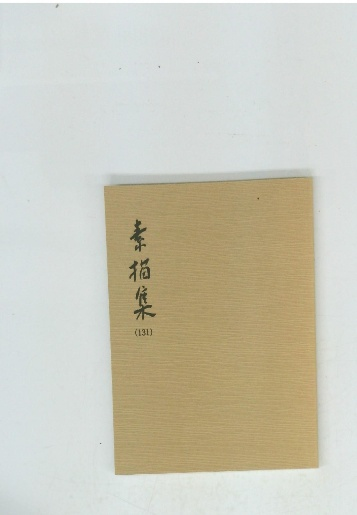 素描集
(131)